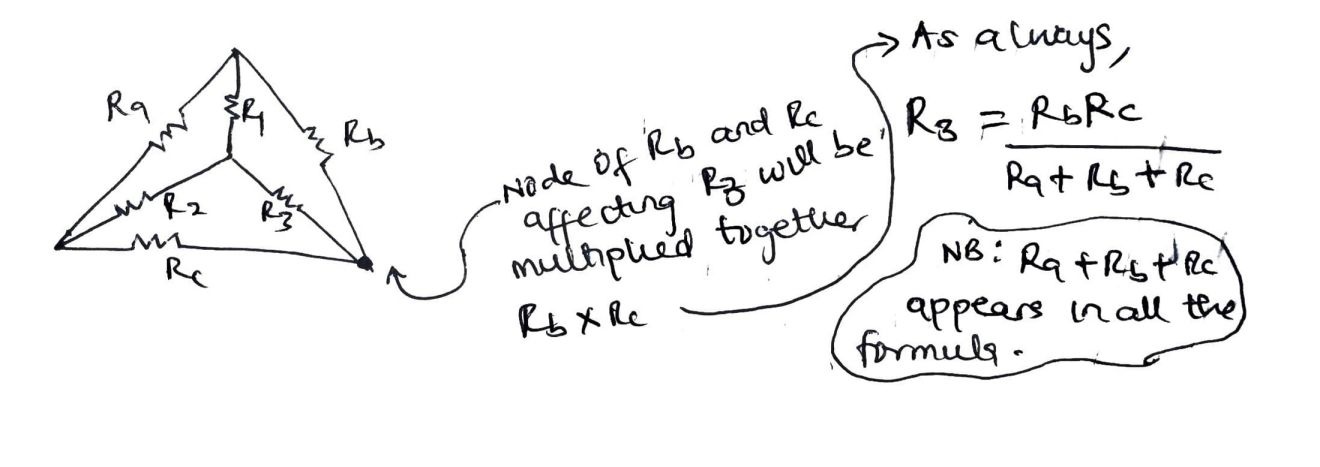 Ra
R1
Rb
R2
R3
Rc
Node of Rb and Rc
affecting R3 will be
multiplied together
Rb x Rc
As always,
R3 = RbRc
Ra + Rb + Rc
NB: Ra + Rb + Rc
appears in all the
formula.